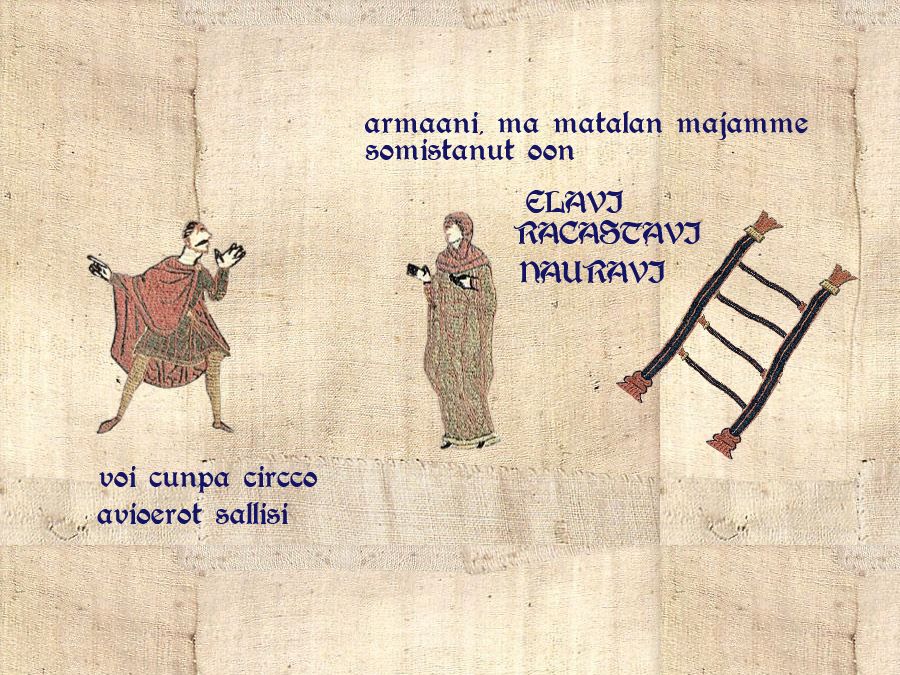 armaani, ma matalan majamme
somistanut oon
ELAVI
RACASTAVI
NAURAVI
voi cunpa circco
avioerot sallisi